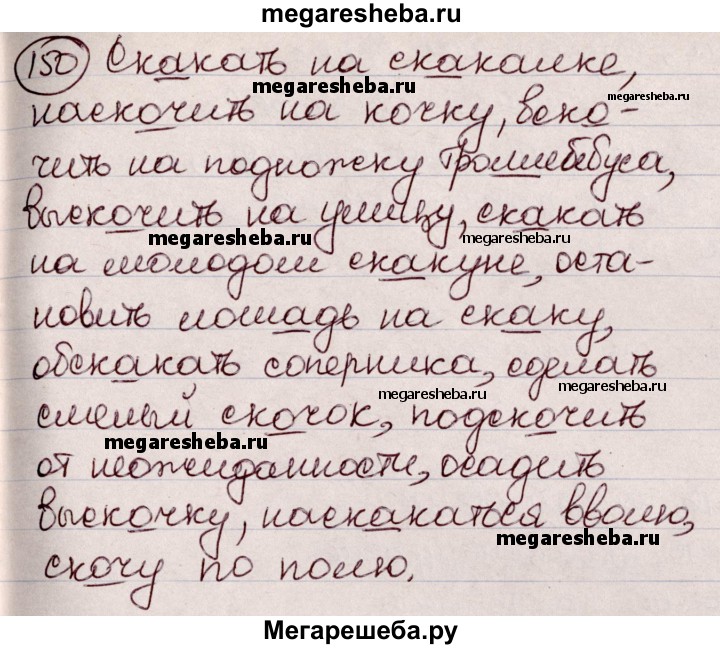 megaresheba.ru
150 Скакать на скакалке,
megaresheba.ru
megaresheba.ru
наскочить на кочку, вско-
чить на подножку троллейбуса,
выскочить на улицу, скакать
megaresheba.ru
megaresheba.ru
на молодом скакуне, оста-
новить лошадь на скаку,
обскакать соперника, сделать
megaresheba.ru
megaresheba.ru
смелый скочок, подскочить
megaresheba.ru
от неожиданности, осадить
выскочку, наскакаться вволю,
megaresheba.ru
скочу по полю.
Мегарешеба.ру